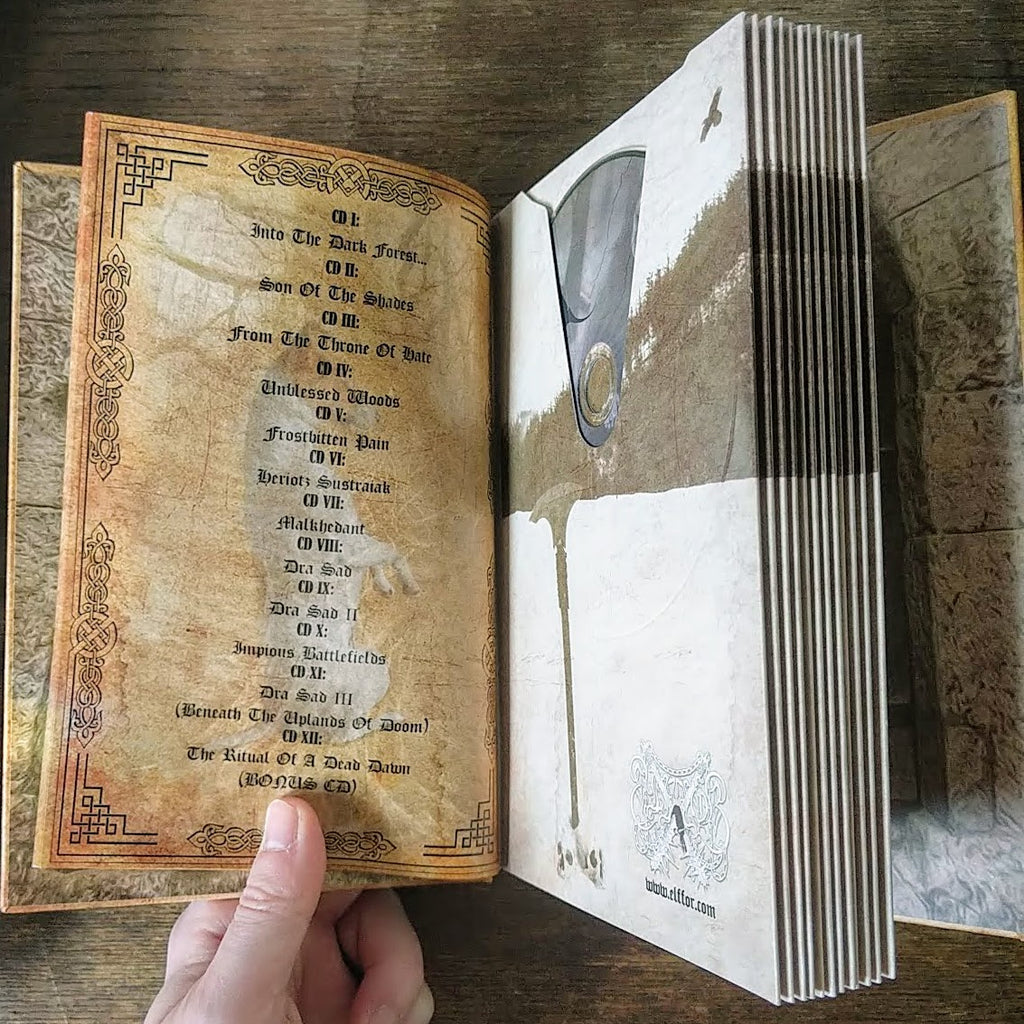 CD I:
Into The Dark Forest...
CD II:
Son Of The Shades
CD III:
From The Throne Of Hate
CD IV:
Unblessed Woods
CD V:
Frostbitten Pain
CD VI:
Heriotz Sustraiak
CD VII:
Malkhedant
CD VIII:
Dra Sad
CD IX:
Dra Sad II
CD X:
Impious Battlefields
CD XI:
Dra Sad III
(Beneath The Uplands Of Doom)
CD XII:
The Ritual Of A Dead Dawn
(BONUS CD)
www.elffor.com